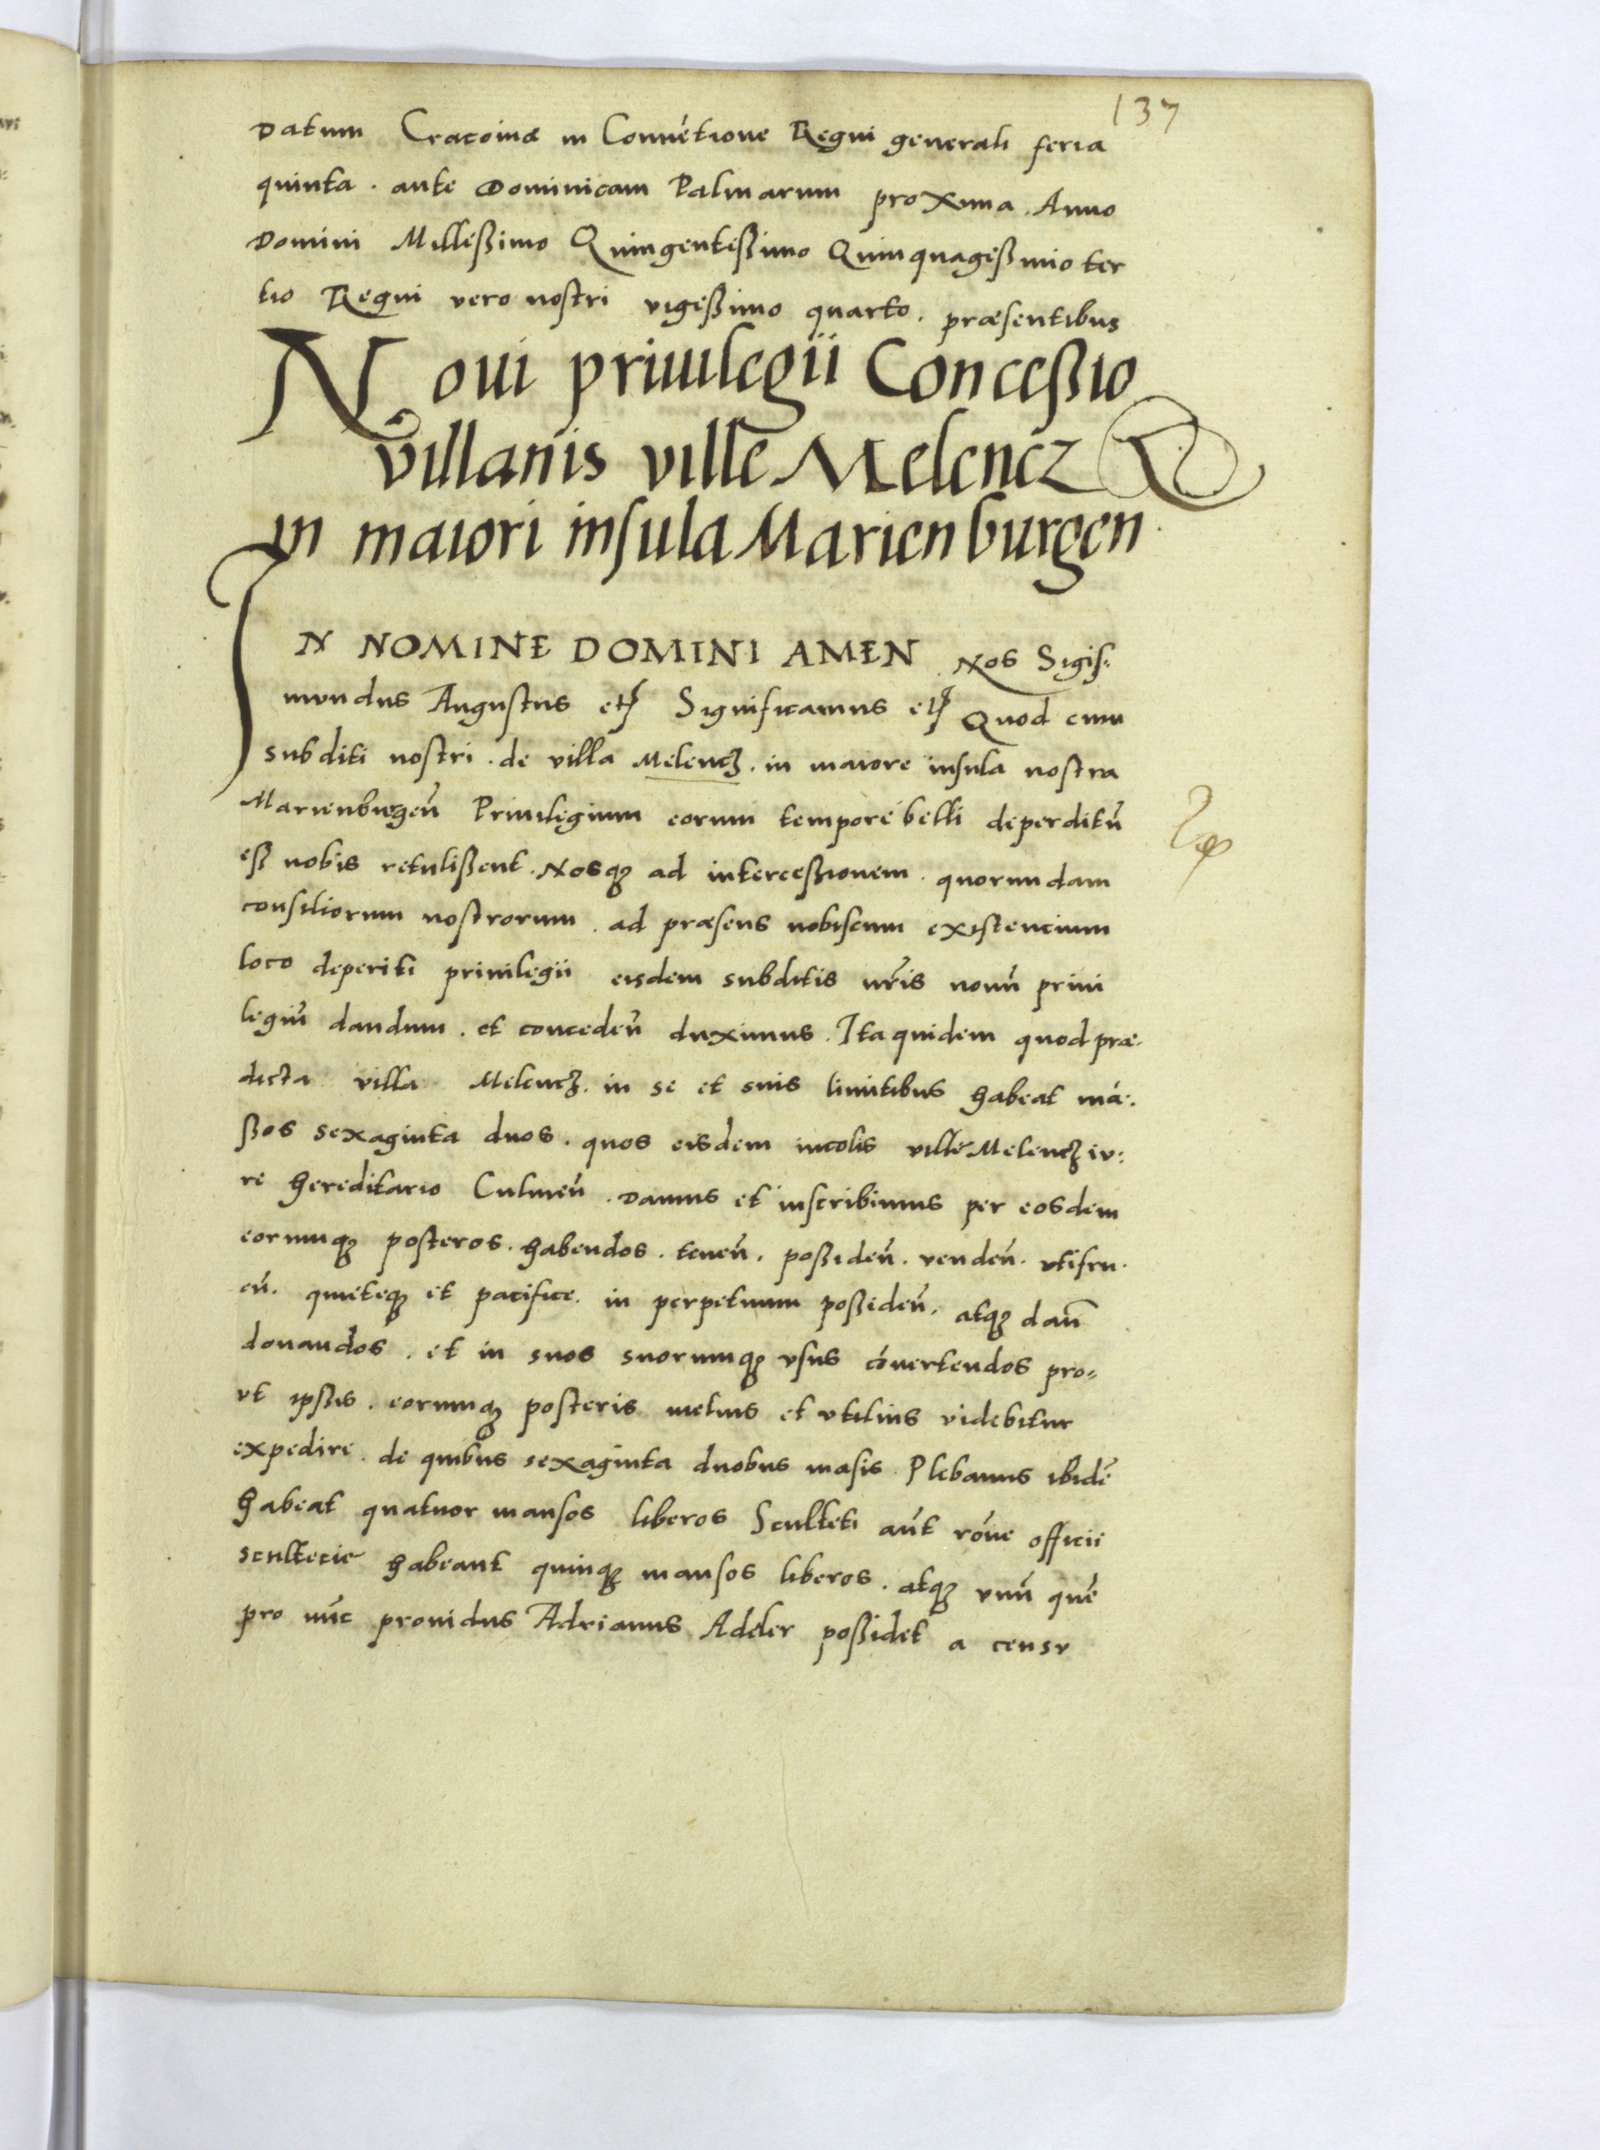 137
Datum Cracoviæ in Convẽtione Regni generali feria
quinta . ante Dominicam Palmarum proxima . Anno
Domini Milleßimo Quingenteßimo Quinquageßimo ter
tio Regni vero nostri vigeßimo quarto . præsentibus
Noui priuilegii Conceßio
villanis ville Melencz
in maiori insula Marienburgen
IN NOMINE DOMINI AMEN Nos Sigis:
mundus Augustus etc Significamus etc Quod cum
subditi nostri . de villa Melencz . in maiore insula nostra
Marienburgeñ Priuilegium eorum tempore belli deperditũ
eß nobis retulißent . Nosq3 ad interceßionem . quorundam
consiliorum nostrorum . ad præsens nobiscum existencium
loco deperiti priuilegii eisdem subditis nr̃is nouũ priui
legiũ dandum . et concedeñ duximus . Ita quidem quod præ-
dicta villa Melencz . in se et suis limitibus habeat mã:
ßos sexaginta duos . quos eisdem incolis ville Melencz iu:
re hereditario Culmeñ . Damus et inscribimus per eosdem
eorumq3 posteros . habendos . teneñ . poßideñ . vendeñ . vtifru-
eñ . quieteq3 et pacifice . in perpetuum poßideñ . atq3 dañ
donandos . et in suos suorumq3 vsus cõuertendos pro=
ut ipsis . eorumq3 posteris melius et vtilius videbitur
expedire . de quibus sexaginta duobus masis . Plebanus ibidẽ
habeat quatuor mansos liberos Sculteti aũt rõne officii
scultecie habeant quinq3 mansos liberos . atq3 vnũ quẽ
pro nũc prouidus Adrianus Adeler poßidet a censu